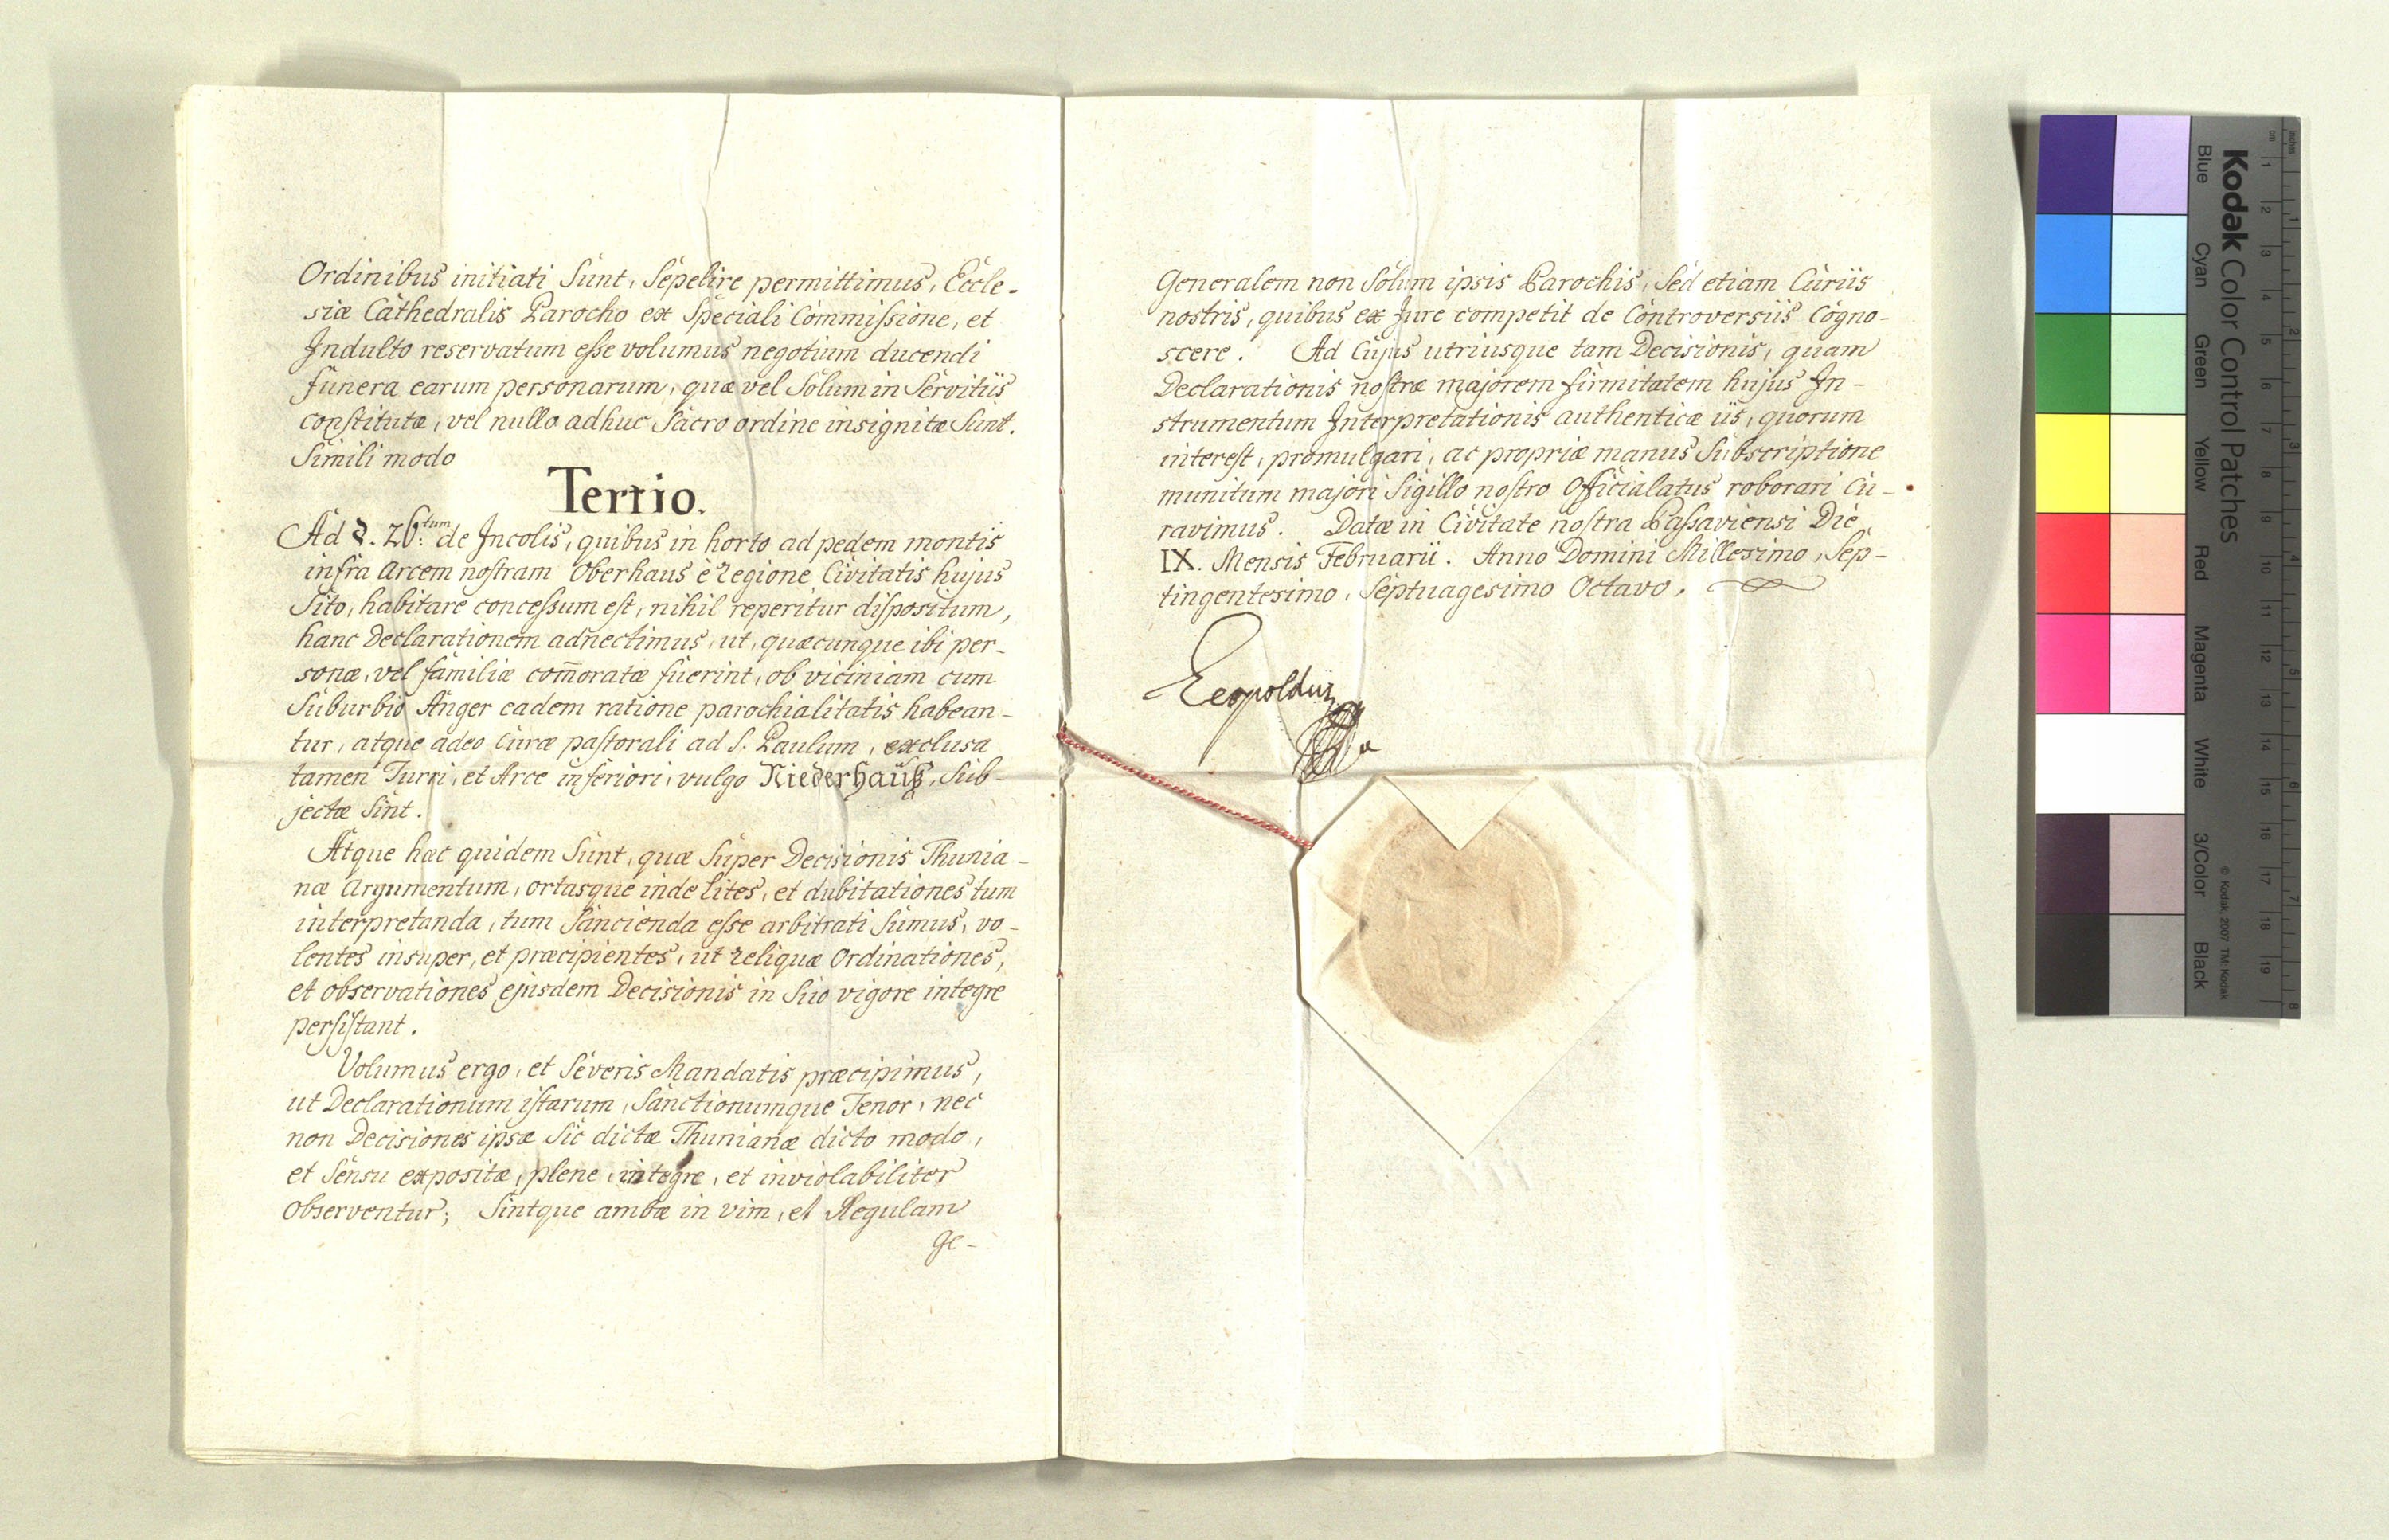 Ordinibus initiati sunt, sepelire permittimus, Eccle-
siæ Cathedralis Parocho ex speciali Commissione, et
Indulto reservatum esse volumus negotium ducendi
funera earum personarum, quæ vel solum in servitiis
constitutæ, vel nullo adhuc sacro ordine insignitæ sunt.
Simili modo
Tertio.
Ad §. 26.tum de Incolis, quibus in horto ad pedem montis
infra Arcem nostram Oberhaus è regione Civitatis hujus
sito, habitare concessum est, nihil reperitur dispositum,
hanc Declarationem adnectimus, ut, quæcunque ibi per-
sonæ, vel familiæ com̄oratæ fuerint, ob viciniam cum
suburbio Anger eadem ratione parochialitatis habean-
tur, atque adeo curæ pastorali ad S. Paulum, exclusa
tamen Turri, et Arce inferiori, vulgo Niederhauß, sub-
jectæ sint.
Atque hæc quidem sunt, quæ super Decisionis Thunia-
næ Argumentum, ortasque inde lites, et dubitationes tum
interpretanda, tum sancienda esse arbitrati sumus, vo-
lentes insuper, et præcipientes, ut reliquæ Ordinationes,
et observationes ejusdem Decisionis in suo vigore integre
persistant.
Volumus ergo, et severis Mandatis præcipimus,
ut Declarationum istarum, Sanctionumque Tenor, nec
non Decisiones ipsæ sic dictæ Thunianæ dicto modo,
et sensu expositæ, plene, integre, et inviolabiliter
observentur; Sintque ambæ in vim, et Regulam
ge-
generalem non solum ipsis Parochis, sed etiam Curiis
nostris, quibus ex Jure competit de Controversiis cogno-
scere. Ad cujus utriusque tam Decisionis, quam
Declarationis nostræ majorem firmitatem hujus In-
strumentum Interpretationis authenticæ iis, quorum
interest, promulgari, ac propriæ manus subscriptione
munitum majori sigillo nostro Officialatus roborari cu-
ravimus. Datæ in Civitate nostra Passaviensi Die
IX. Mensis Februarii. Anno Domini Millesimo, Sep-
tingentesimo, Septuagesimo Octavo.
Leopoldus
Kodak Color Control Patches
© Kodak, 2007 TM: Kodak
inches 1 2 3 4 5 6 7 8
cm 1 2 3 4 5 6 7 8 9 10 11 12 13 14 15 16 17 18 19
Blue Cyan Green Yellow Red Magenta White 3/Color Black